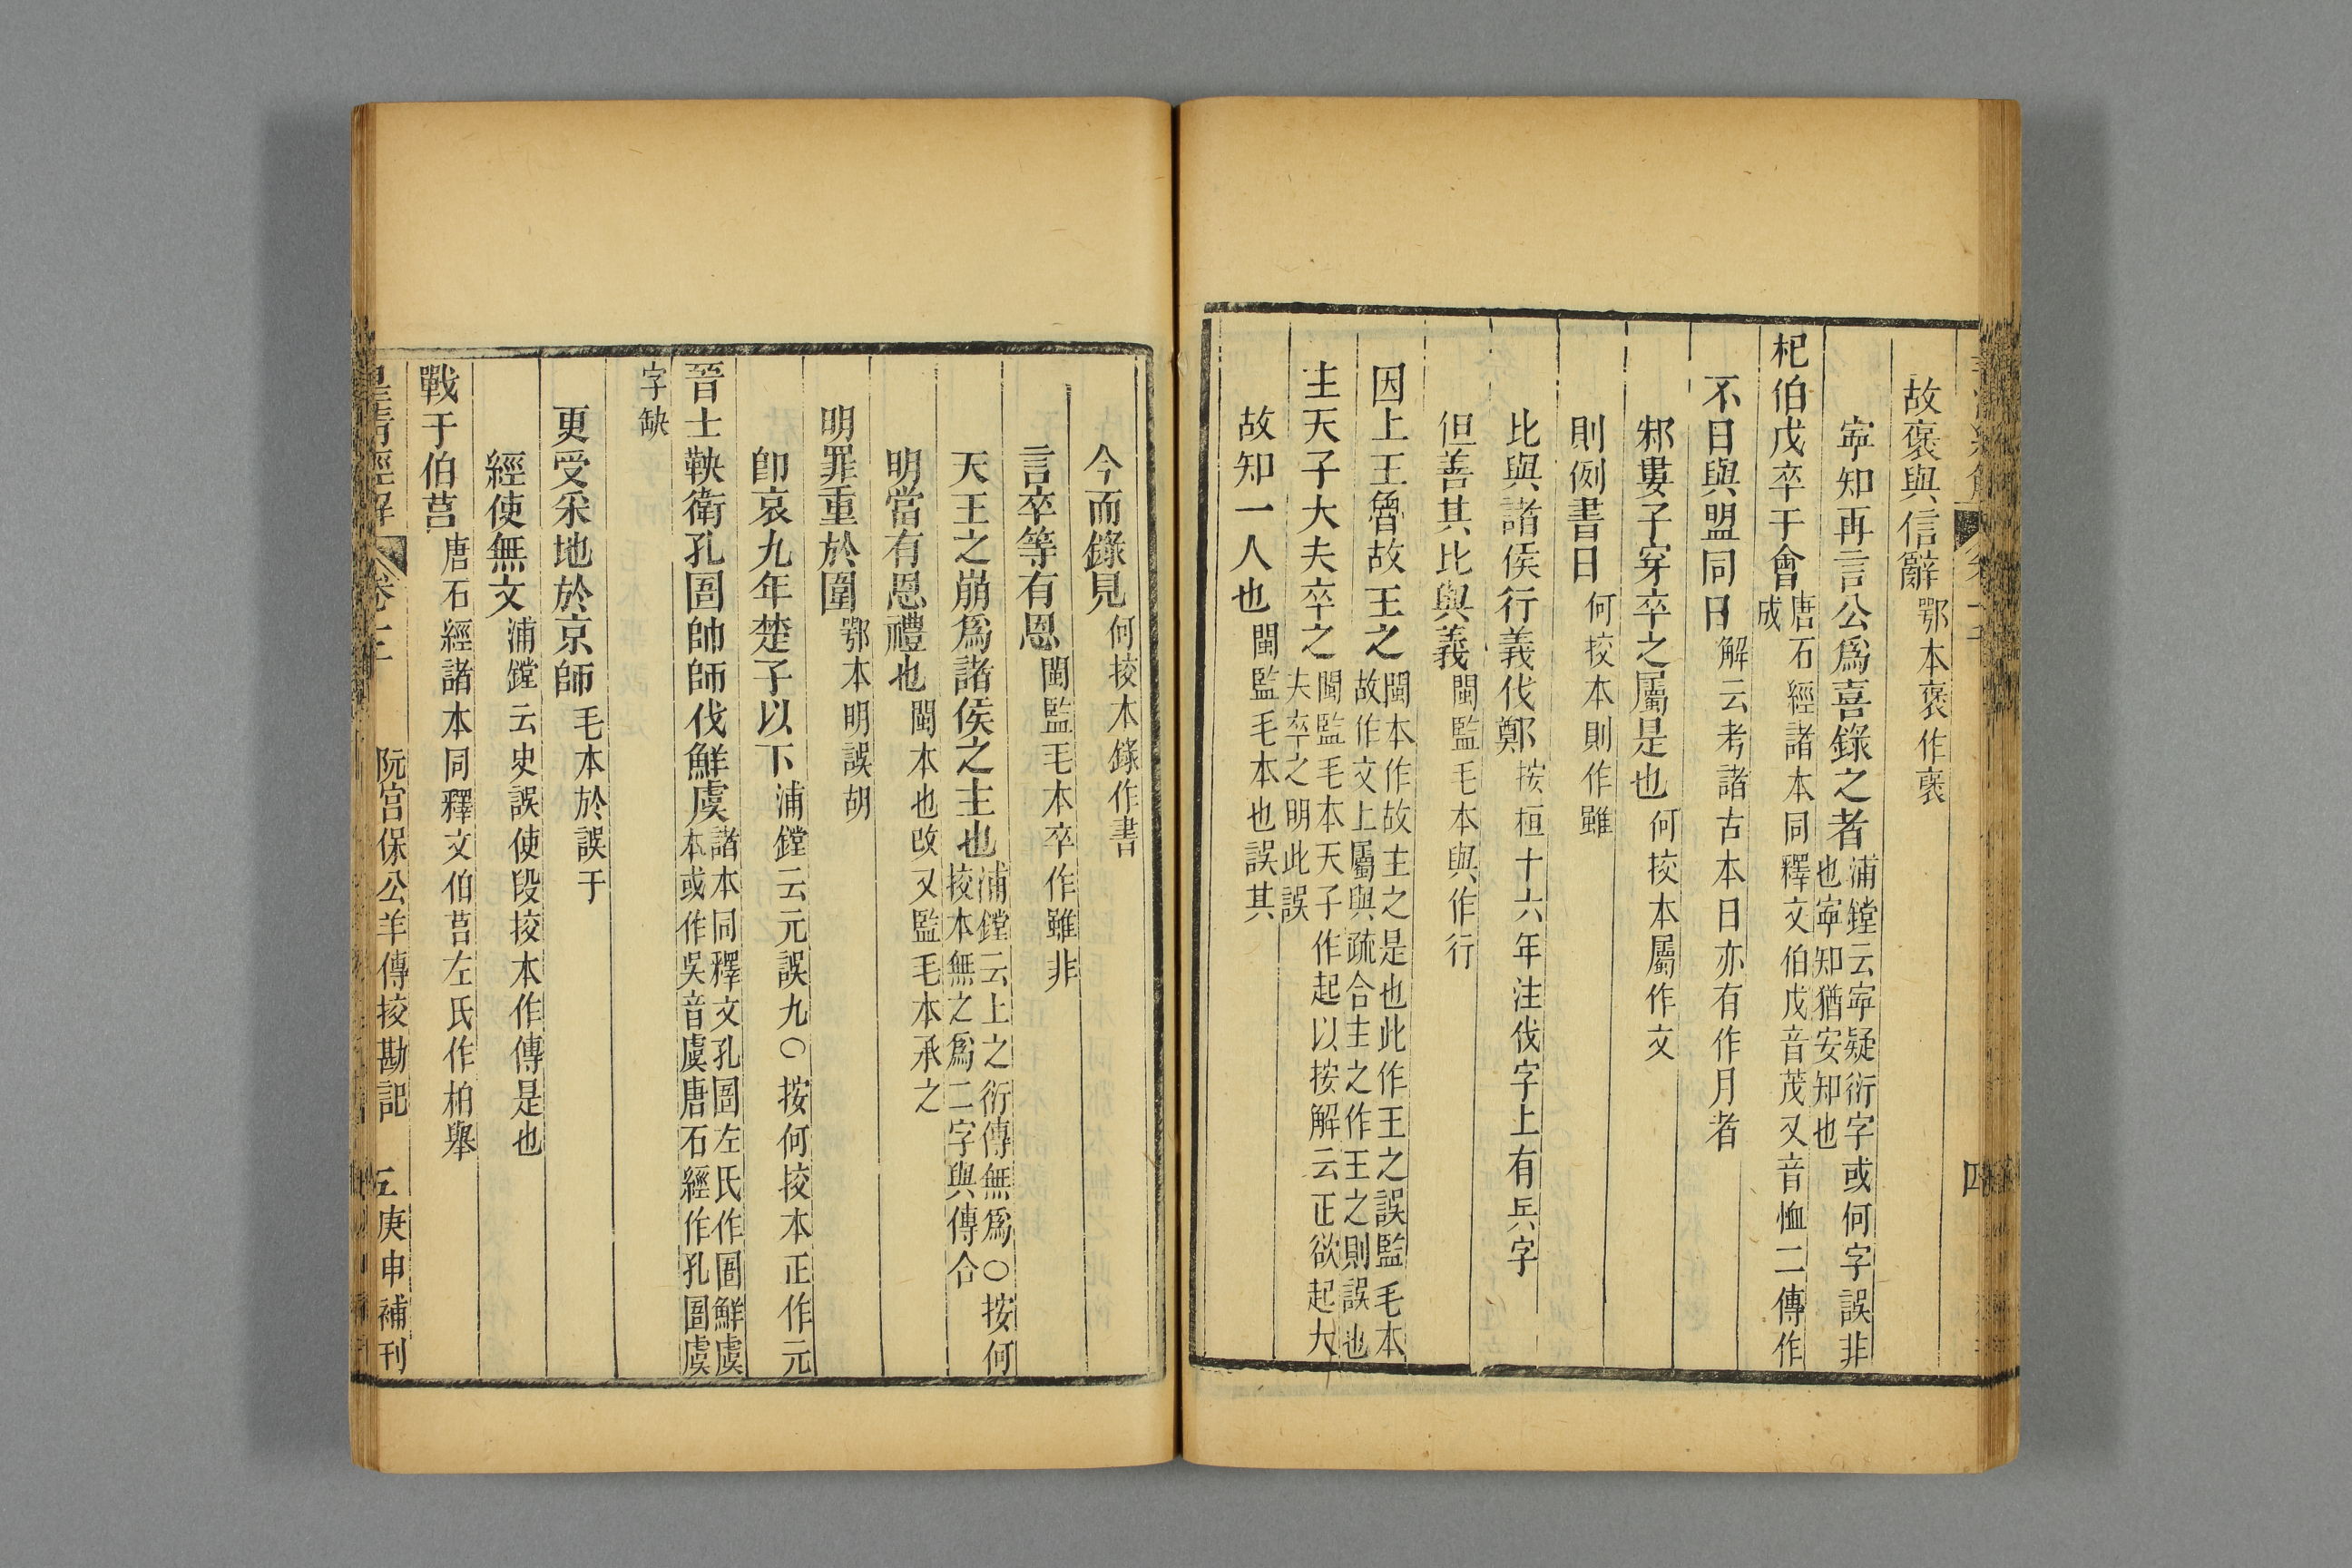 故裦與信辭鄂本裦作褒
寕知再言公爲喜錄之者浦鏜云寕疑衍字或何字誤非
也寕知猶安知也
杞伯戊卒于會唐石經諸本同釋文伯戊音茂又音恤二傳作
成
不日與盟同日解云考諸古本日亦有作月者
邾婁子穿卒之屬是也何挍本屬作文
則例書日何挍本則作雖
比與諸侯行義伐鄭按桓十六年注伐字上有兵字
但善其比與義閩監毛本與作行
因上王魯故王之閩本作故主之是也此作王之誤監毛本
故作文上屬與疏合主之作王之則誤也
主天子大夫卒之閩監毛本天子作起以按解云正欲起大
夫卒之明此誤
故知一人也閩監毛本也誤其
四
今而錄見何挍本錄作書
言卒等有恩閩監毛本卒作雖非
天王之崩爲諸侯之主也浦鏜云上之衍傳無爲○按何
挍本無之爲二字與傳合
明當有恩禮也閩本也改又監毛本承之
明罪重於圍鄂本明誤胡
卽哀九年楚子以下浦鏜云元誤九○按何挍本正作元
晉士鞅衛孔圄帥師伐鮮虞諸本同釋文孔圄左氏作圉鮮虞
本或作吳音虞唐石經作孔圄虞
字缺
更受采地於京師毛本於誤于
經使無文浦鏜云史誤使段挍本作傳是也
戰于伯莒唐石經諸本同釋文伯莒左氏作柏舉
皇淸經解 卷 阮宮保公羊傳挍勘記 五 庚申補刊